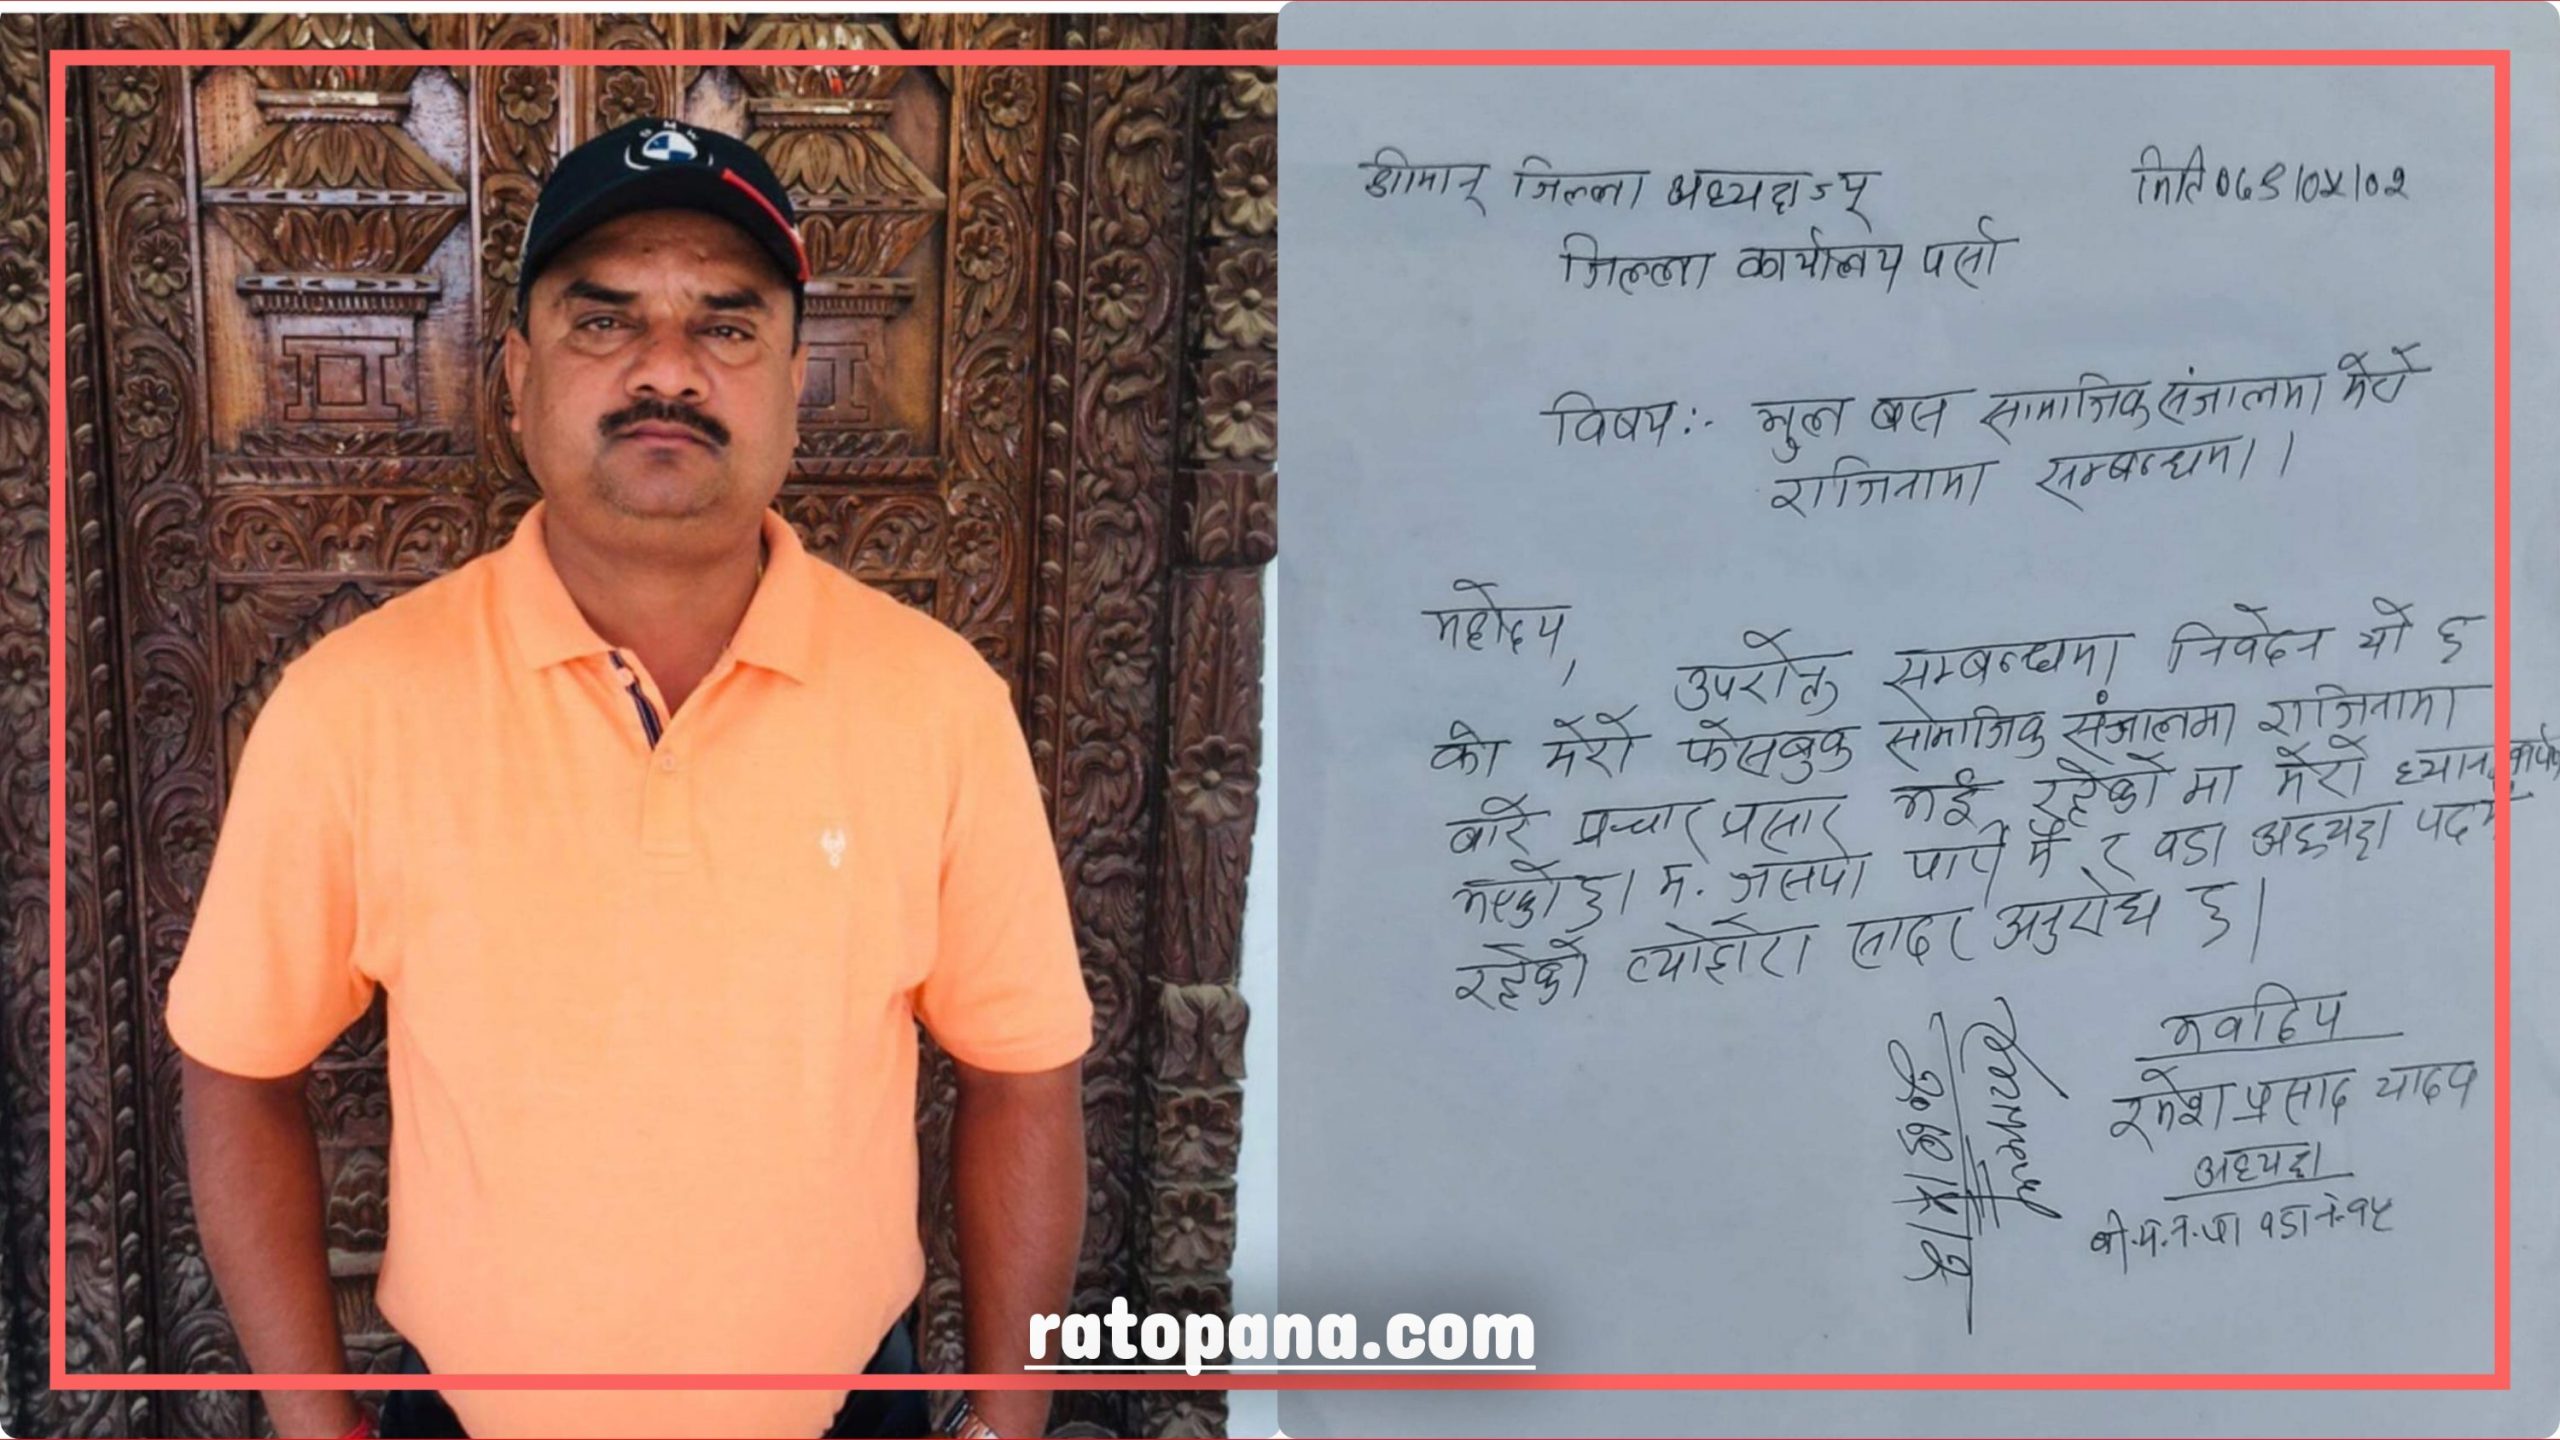 BMW
श्रीमान् जिल्ला अध्यक्षज्यू
मिति
जिल्ला कार्यालय पर्सा
विषय:- भुल बस सामाजिक संजालमा मेरो
राजिनामा सम्बन्धमा।
महोदय,
उपरोक्त सम्बन्धमा निवेदन यो छ
को मेरो फेसबुक सामाजिक संजालमा राजिनामा
बारे प्रचार प्रसार भई रहेको मा मेरो ध्यान
भएको छ। म. जसपा पार्टी मै र वडा अध्यक्ष पदमै
रहेको व्योहोरा सादर अनुरोध छ।
भवदिय
रमेश प्रसाद यादव
अध्यक्ष
बी.म.न.पा वडा नं.१५
ratopana.com